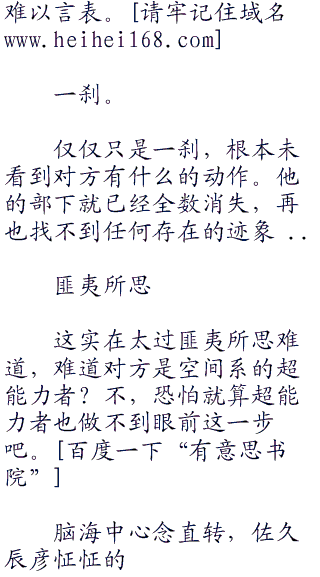 难以言表。[请牢记住域名
www.heihei168.com]
一刹。
仅仅只是一刹，根本未
看到对方有什么的动作。他
的部下就已经全数消失，再
也找不到任何存在的迹象 ..
匪夷所思
这实在太过匪夷所思难
道，难道对方是空间系的超
能力者？不，恐怕就算超能
力者也做不到眼前这一步
吧。[百度一下“有意思书
院”]
脑海中心念直转，佐久
辰彦怔怔的